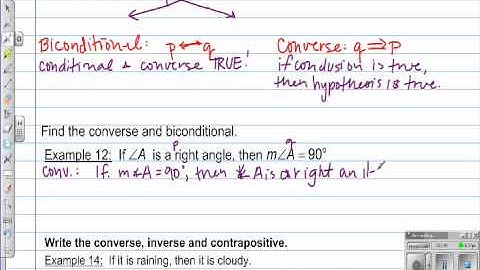 Biconditional: p ↔ q
conditional & converse TRUE!
Converse: q ⇒ p
if conclusion is true,
then hypothesis is true.
Find the converse and biconditional.
p q
Example 12: If ∠A is a right angle, then m∠A = 90°
Conv.: If m∠A = 90°, then ∠A is a right an
Write the converse, inverse and contrapositive.
Example 14: If it is raining, then it is cloudy.